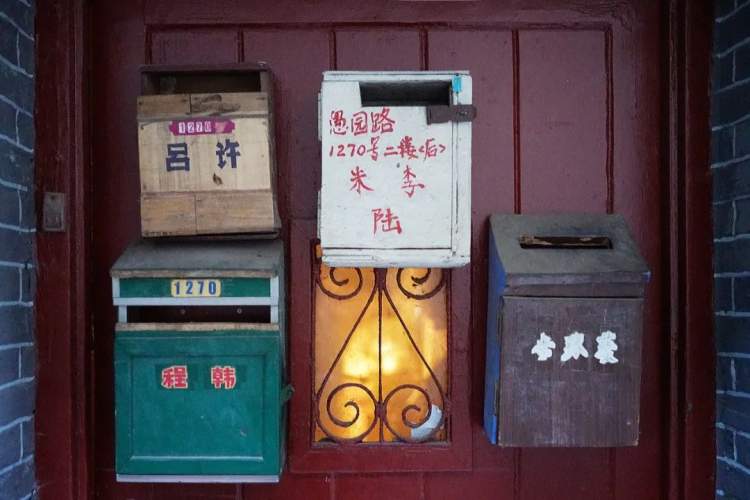 1270
吕 许
愚园路
1270号二楼<后>
米 李
陆
1270
程 韩